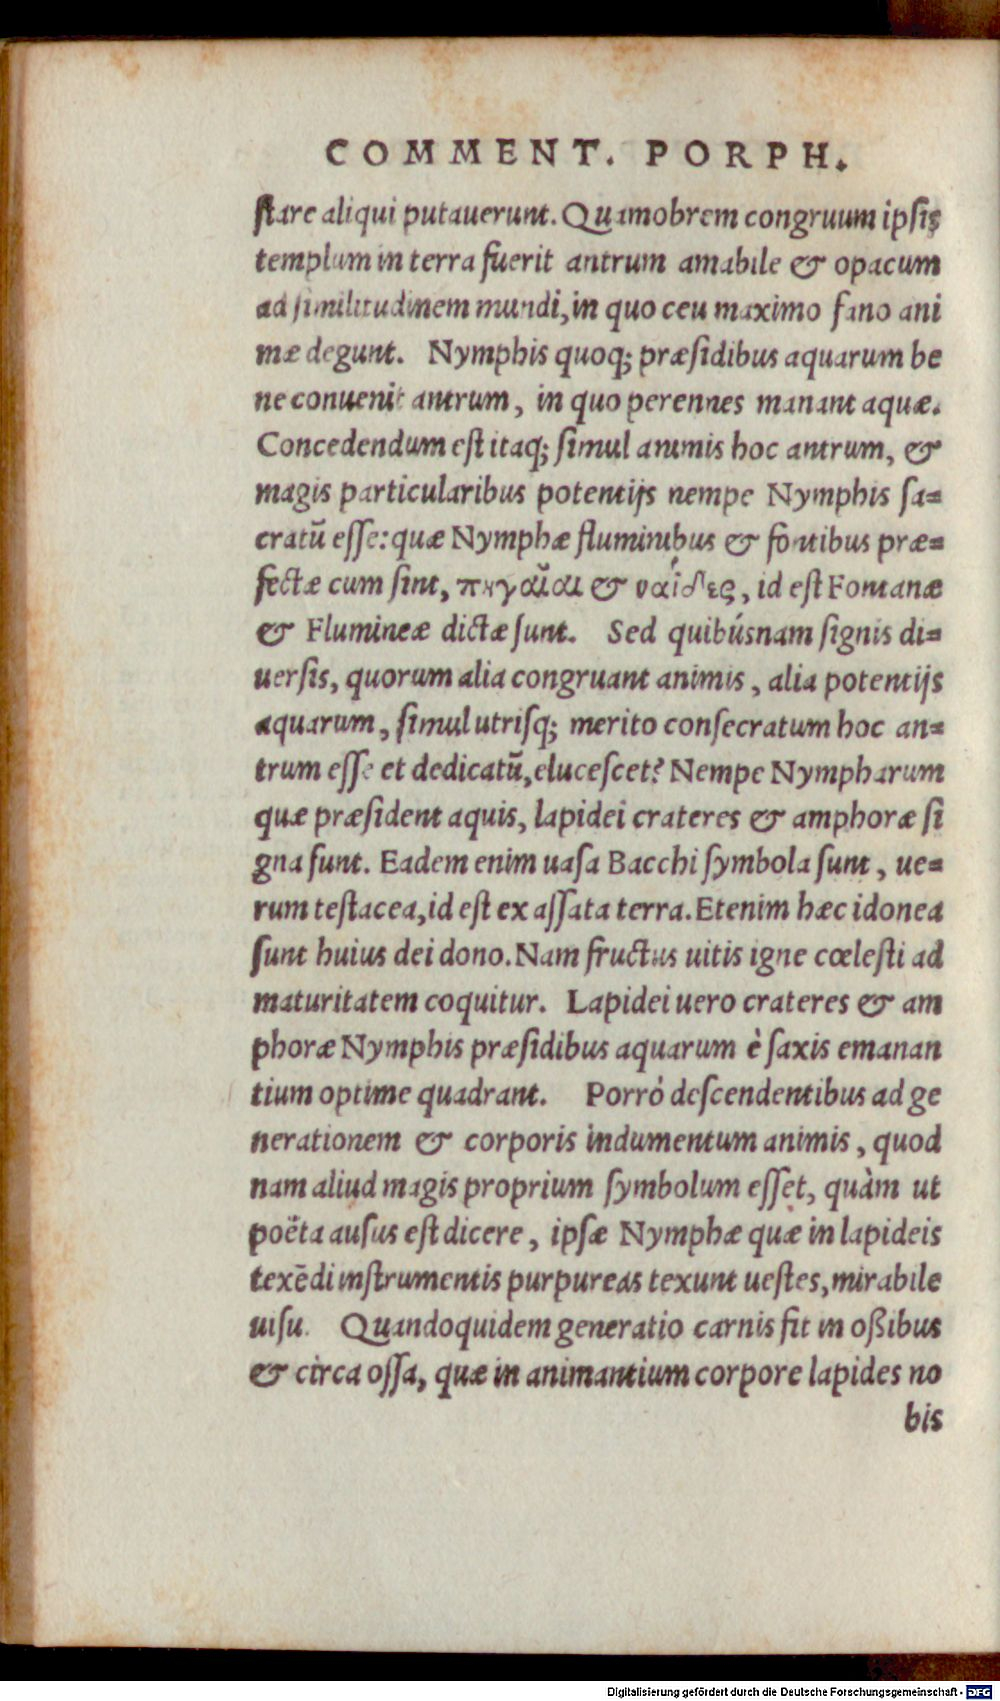 COMMENT. PORPH.
stare aliqui putauerunt. Quamobrem congruum ipsis
templum in terra fuerit antrum amabile & opacum
ad similitudinem mundi, in quo ceu maximo fano ani
mæ degunt. Nymphis quoq; præsidibus aquarum be
ne conuenit antrum, in quo perennes manant aquæ.
Concedendum est itaq; simul animis hoc antrum, &
magis particularibus potentijs nempe Nymphis sa=
cratū esse: quæ Nymphæ fluminibus & fontibus præ=
fectæ cum sint, πηγαῖαι & ναΐδες, id est Fontanæ
& Flumineæ dictæ sunt. Sed quibúsnam signis di=
uersis, quorum alia congruant animis, alia potentijs
aquarum, simul utrisq; merito consecratum hoc an=
trum esse et dedicatū, elucescet? Nempe Nympharum
quæ præsident aquis, lapidei crateres & amphoræ si
gna sunt. Eadem enim uasa Bacchi symbola sunt, ue=
rum testacea, id est ex assata terra. Etenim hæc idonea
sunt huius dei dono. Nam fructus uitis igne cœlesti ad
maturitatem coquitur. Lapidei uero crateres & am
phoræ Nymphis præsidibus aquarum è saxis emanan
tium optime quadrant. Porrò descendentibus ad ge
nerationem & corporis indumentum animis, quod
nam aliud magis proprium symbolum esset, quàm ut
poëta ausus est dicere, ipsæ Nymphæ quæ in lapideis
texēdi instrumentis purpureas texunt uestes, mirabile
uisu. Quandoquidem generatio carnis fit in oßibus
& circa ossa, quæ in animantium corpore lapides no
bis
Digitalisierung gefördert durch die Deutsche Forschungsgemeinschaft - DFG